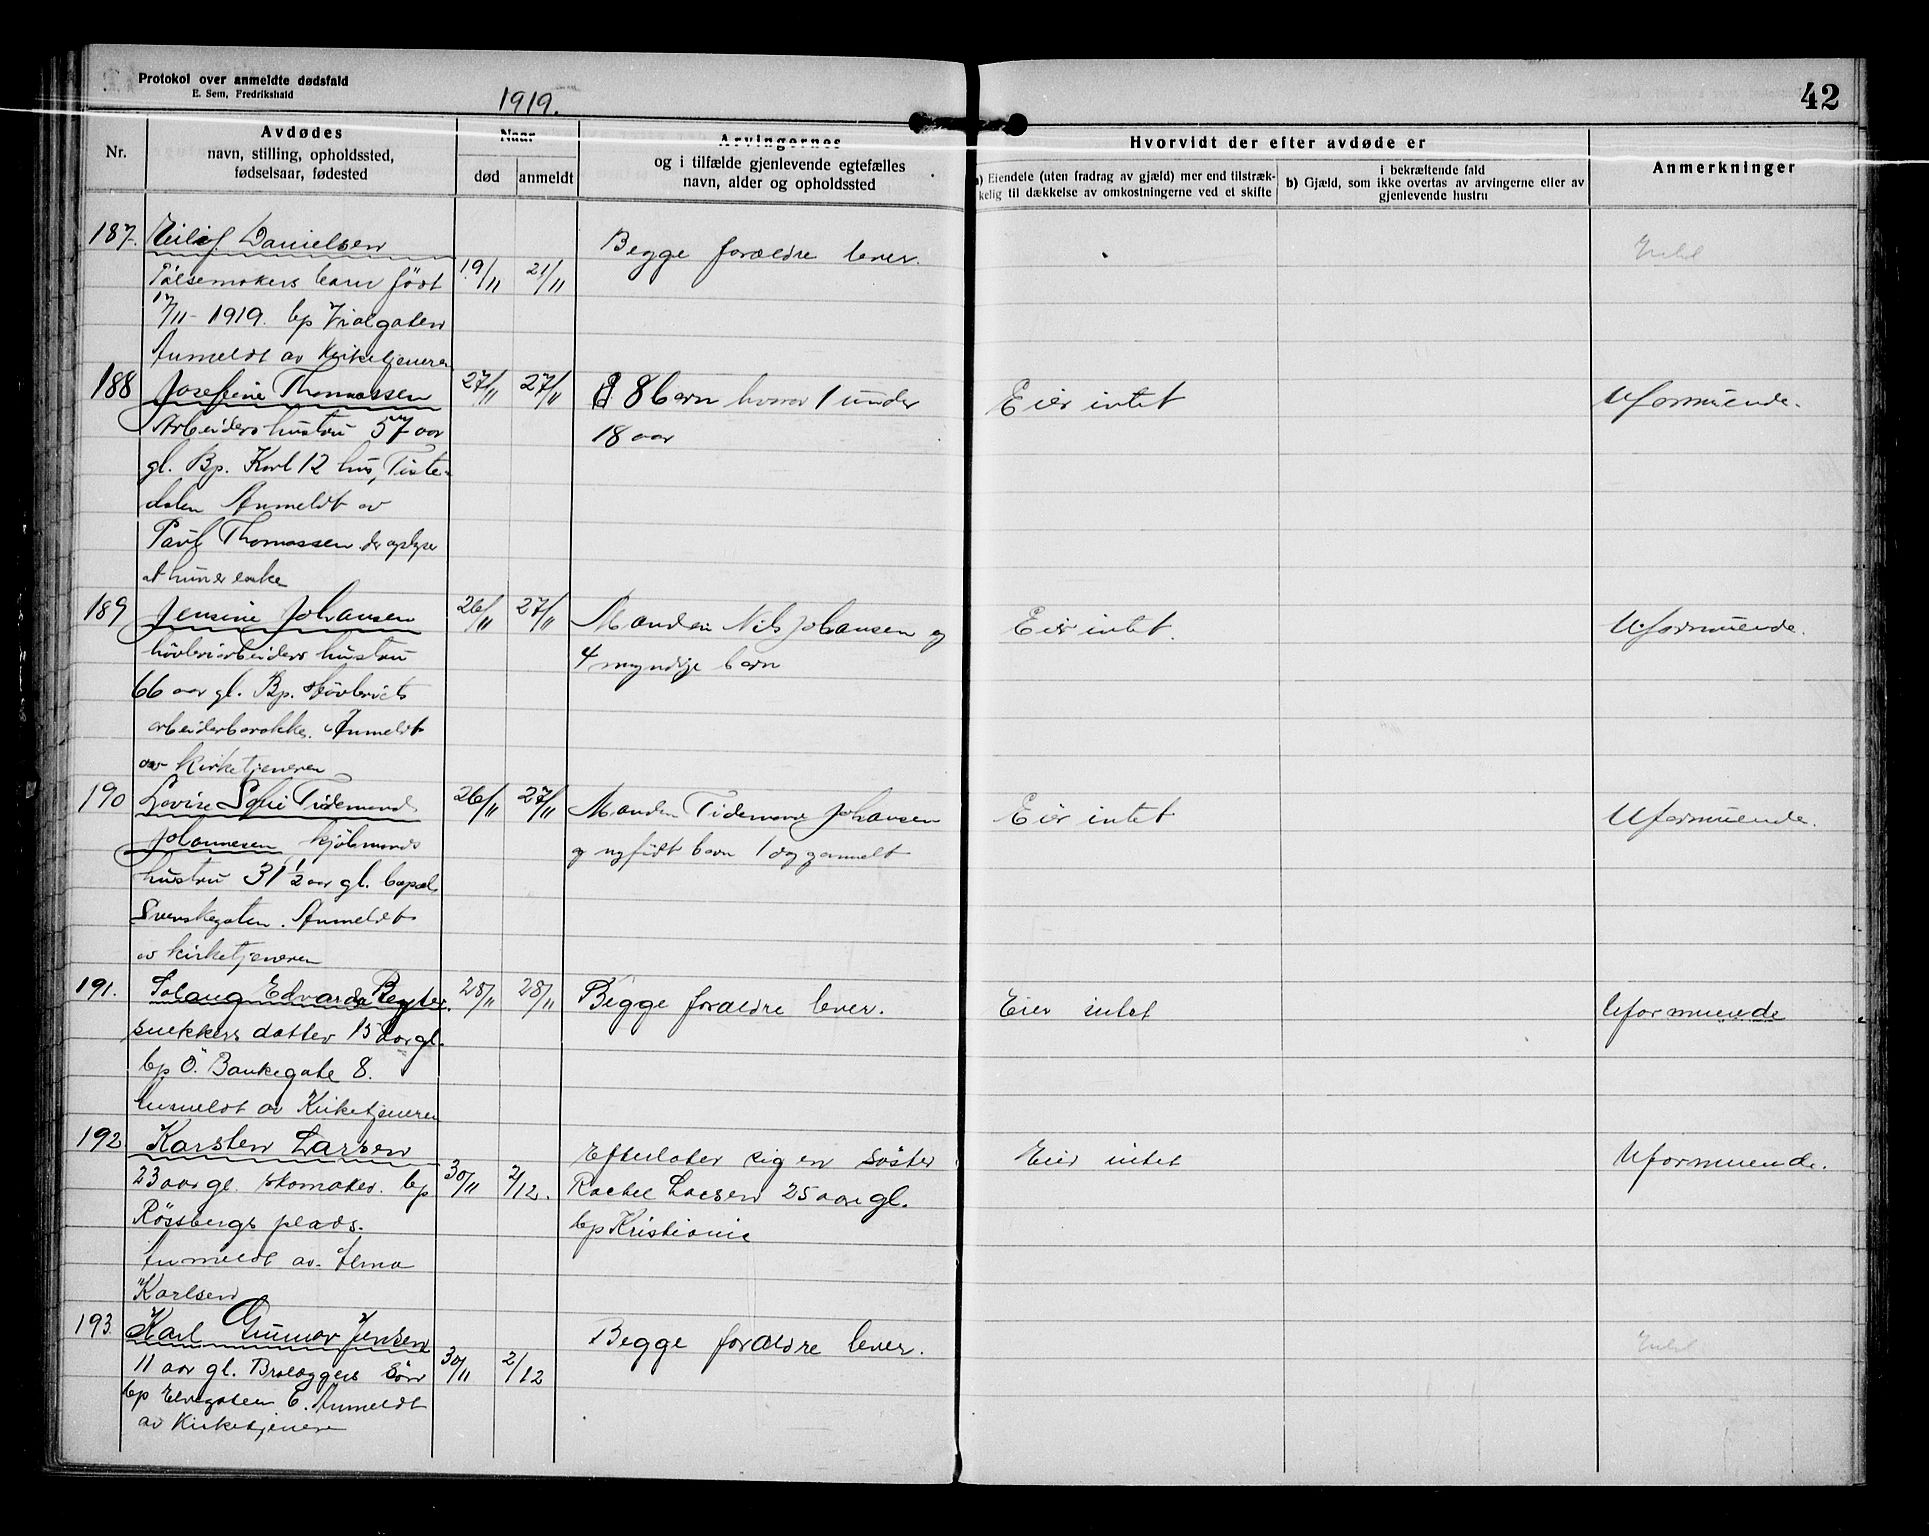 Protokol over anmeldte dødsfald
E. Sem, Fredrikshald
1919.
42
Nr.
Avdødes
navn, stilling, opholdssted,
fødselsaar, fødested
Naar
død
anmeldt
Arvingernes
og i tilfælde gjenlevende egtefælles
navn, alder og opholdssted
Hvorvidt der efter avdøde er
a) Eiendele (uten fradrag av gjæld) mer end tilstræk-
kelig til dækkelse av omkostningerne ved et skifte
i bekræftende fald
b) Gjæld, som ikke overtas av arvingerne eller av
gjenlevende hustru
Anmerkninger
187. Eilif Danielsen
Pølsemakers barn født
17/11-1919. bp
Anmeldt av Kirketjeneren
19/11
21/11
Begge forældre lever.
188 Josefine Thomassen
Arbeiders hustru 57 aar
gl. Bp. Karl 12 hus, Tiste-
dalen Anmeldt av
Paul Thomassen der oplyser
at hun er enke
27/11
27/11
8 barn hvorav 1 under
18 aar
Eier intet
Uformuende.
189 Jensine Johansen
høvleriarbeiders hustru
66 aar gl. Bp. Høvleriets
arbeiderbarakke. Anmeldt
av kirketjeneren
26/11
27/11
Manden Nils Johansen og
4 myndige barn
Eier intet.
Uformuende.
190 Lovise Sofie Tidemand
Johannesen kjølmands
hustru 31 1/2 aar gl. bopæl
Svenskegaten. Anmeldt
av kirketjeneren
26/11
27/11
Manden Tidemand Johansen
og nyfødt barn 1 dag gammelt
Eier intet
Uformuende.
191. Solaug Edvarda
snekkers datter 15 aar gl.
bp Ö. Bankegate 8.
Anmeldt av Kirketjeneren
28/11
28/11
Begge forældre lever.
Eier intet
Uformuende
192. Karsten Larsen
23 aar gl. skomaker. bp
Røssbergs plads.
Anmeldt av
Karlsen
30/11
2/12.
Efterlater sig en søster
Rachel Larsen 25 aar gl.
bp Kristiania
Eier intet
Uformuende.
193. Karl Gunnar Jensen
11 aar gl. Brolæggers sønn
bp Elvegaten 6. Anmeldt
av Kirketjenere
30/11
2/12
Begge forældre lever.